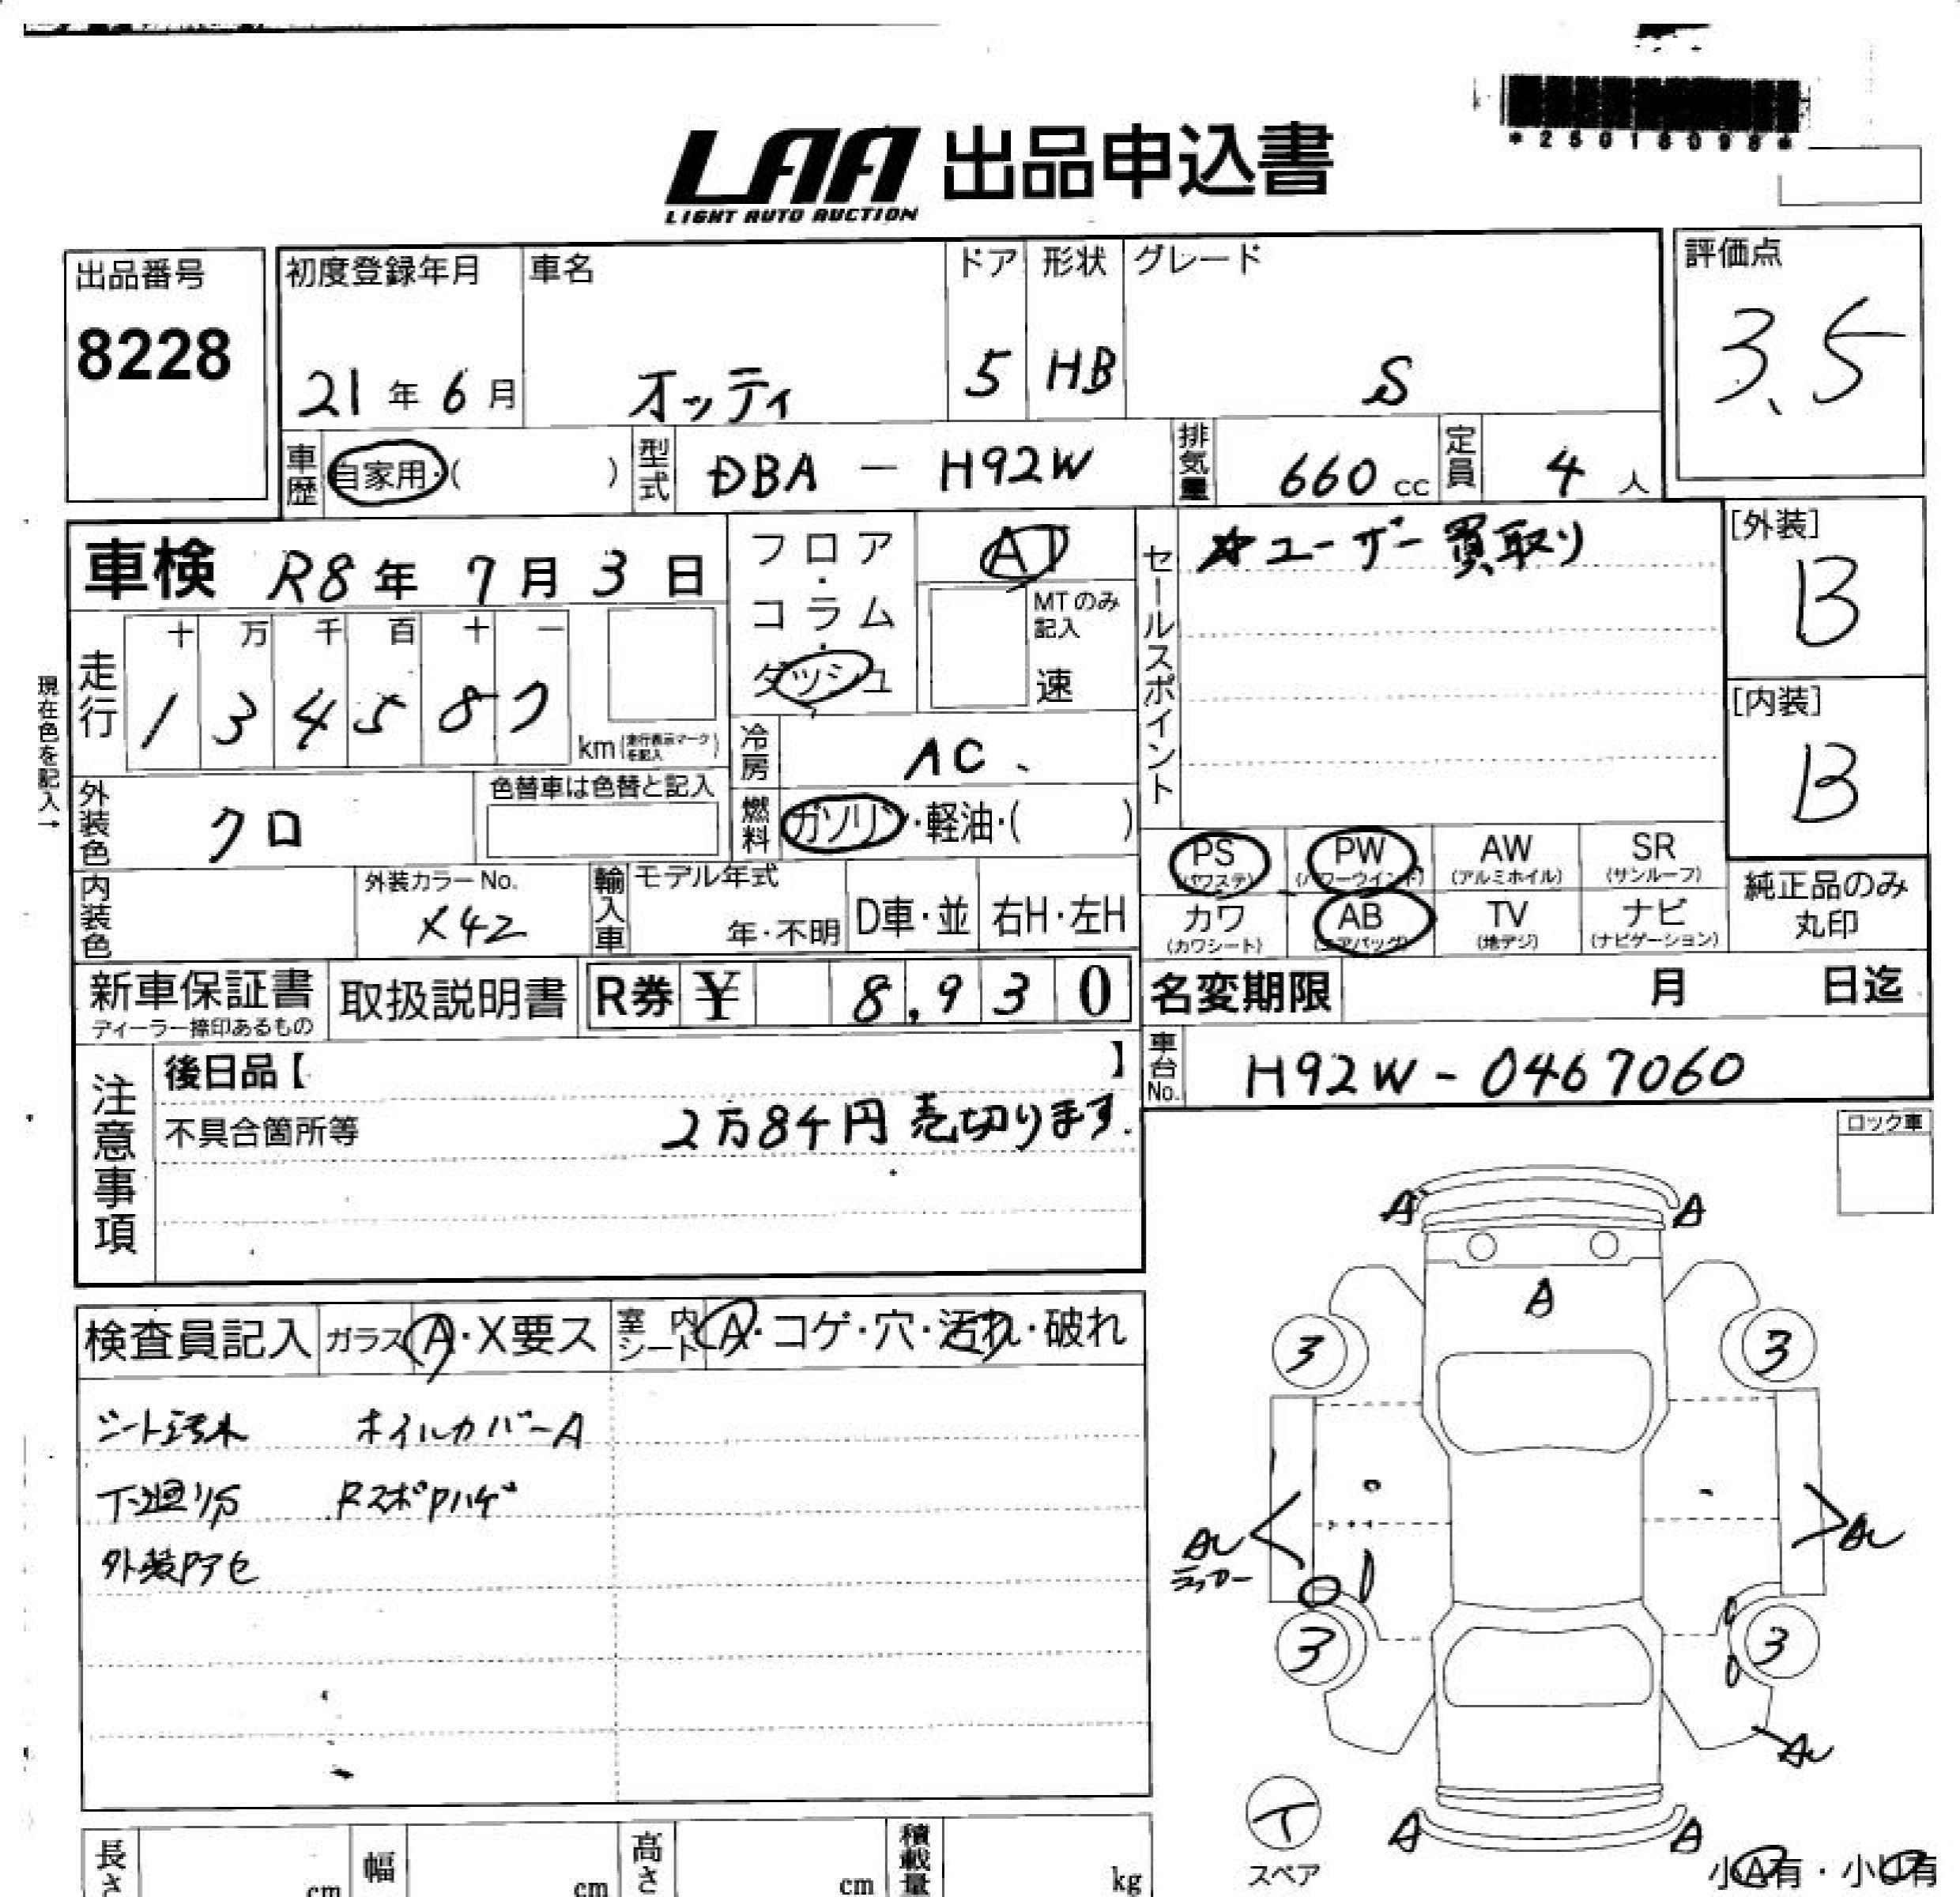 *25018098*
LAA 出品申込書
LIGHT AUTO AUCTION
出品番号
8228
初度登録年月
21年6月
車名
オッティ
ドア
5
形状
HB
グレード
S
評価点
3.5
車歴
自家用・( )
型式
DBA - H92W
排気量
660 cc
定員
4 人
車検 R8年 7月 3日
フロア・コラム・ダッシュ
AT
MTのみ記入
速
セールスポイント
☆ユーザー買取り
[外装]
B
[内装]
B
現在色を記入→
走行
十 万 千 百 十 一
1 3 4 5 8 7
km(走行表示マークを記入)
冷房
AC
燃料
ガソリン・軽油・( )
外装色
クロ
色替車は色替と記入
内装色
外装カラーNo.
X42
輸入車
モデル年式
年・不明
D車・並
右H・左H
PS
(パワステ)
PW
(パワーウインド)
AW
(アルミホイル)
SR
(サンルーフ)
カワ
(カワシート)
AB
(エアバッグ)
TV
(地デジ)
ナビ
(ナビゲーション)
純正品のみ
丸印
新車保証書
ディーラー捺印あるもの
取扱説明書
R券 ¥ 8,930
名変期限 月 日迄
車台No.
H92W-0467060
注意事項
後日品【 】
不具合箇所等
2万84千円 売切ります.
ロック車
検査員記入
ガラス A・X要ス
室内シート A・コゲ・穴・汚れ・破れ
シート汚れ ホイルカバーA
下廻りS RスポPハゲ
外装Pアセ
A A
A
3 3
AU
AU
3 3
AU
A A
T
スペア
小A有・小U有
長さ cm
幅 cm
高さ cm
積載量 kg